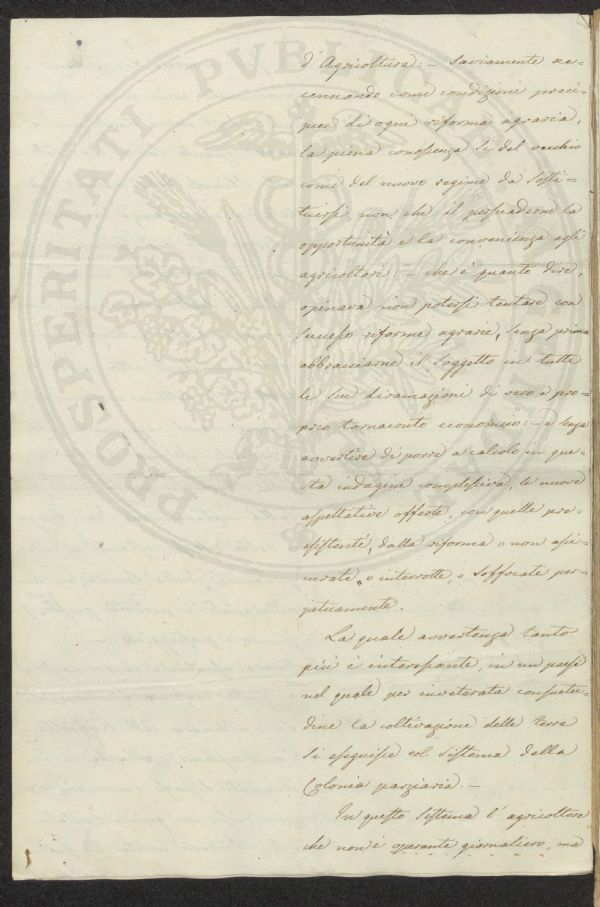 d'Agricoltura: – Saviamente ac-
cennando come condizioni preci-
pue di ogni riforma agraria,
la piena conoscenza sì del vecchio
come del nuovo regime da sosti-
tuirsi, non che il persuaderne la
opportunità e la convenienza agli
agricoltori: – che è quanto dire,
opinava non potersi tentare con
successo riforme agrarie, senza prima
abbracciarne il soggetto in tutte
le sue diramazioni di vero e pro-
prio tornaconto economico: – e senza
avvertire di porre a calcolo in que-
sta indagine complessiva, le nuove
aspettative offerte, con quelle pre-
esistenti, dalla riforma o non assi-
curate, o interrotte, o soffocate per-
petuamente.
La quale avvertenza tanto
più è interessante, in un paese
nel quale per inveterata consuetu-
dine la coltivazione delle terre
si eseguisce col sistema della
Colonia parziaria. –
In questo sistema l'agricoltore
che non è operante giornaliero, ma
PROSPERITATI PVBLICAE